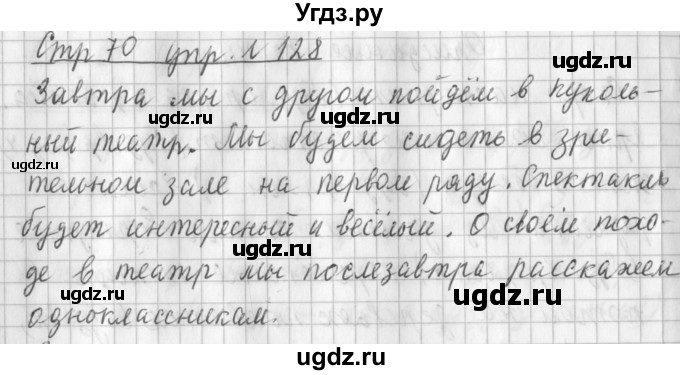 Угдз.ру
Стр 70 упр. № 128
Завтра мы с другом пойдём в куколь-
ный театр. Мы будем сидеть в зри-
тельном зале на первом ряду. Спектакль
будет интересный и весёлый. О своём похо-
де в театр мы послезавтра расскажем
одноклассникам.
ugdz.ru
ugdz.ru
ugdz.ru
ugdz.ru
ugdz.ru
ugdz.ru
ugdz.ru
ugdz.ru
ugdz.ru